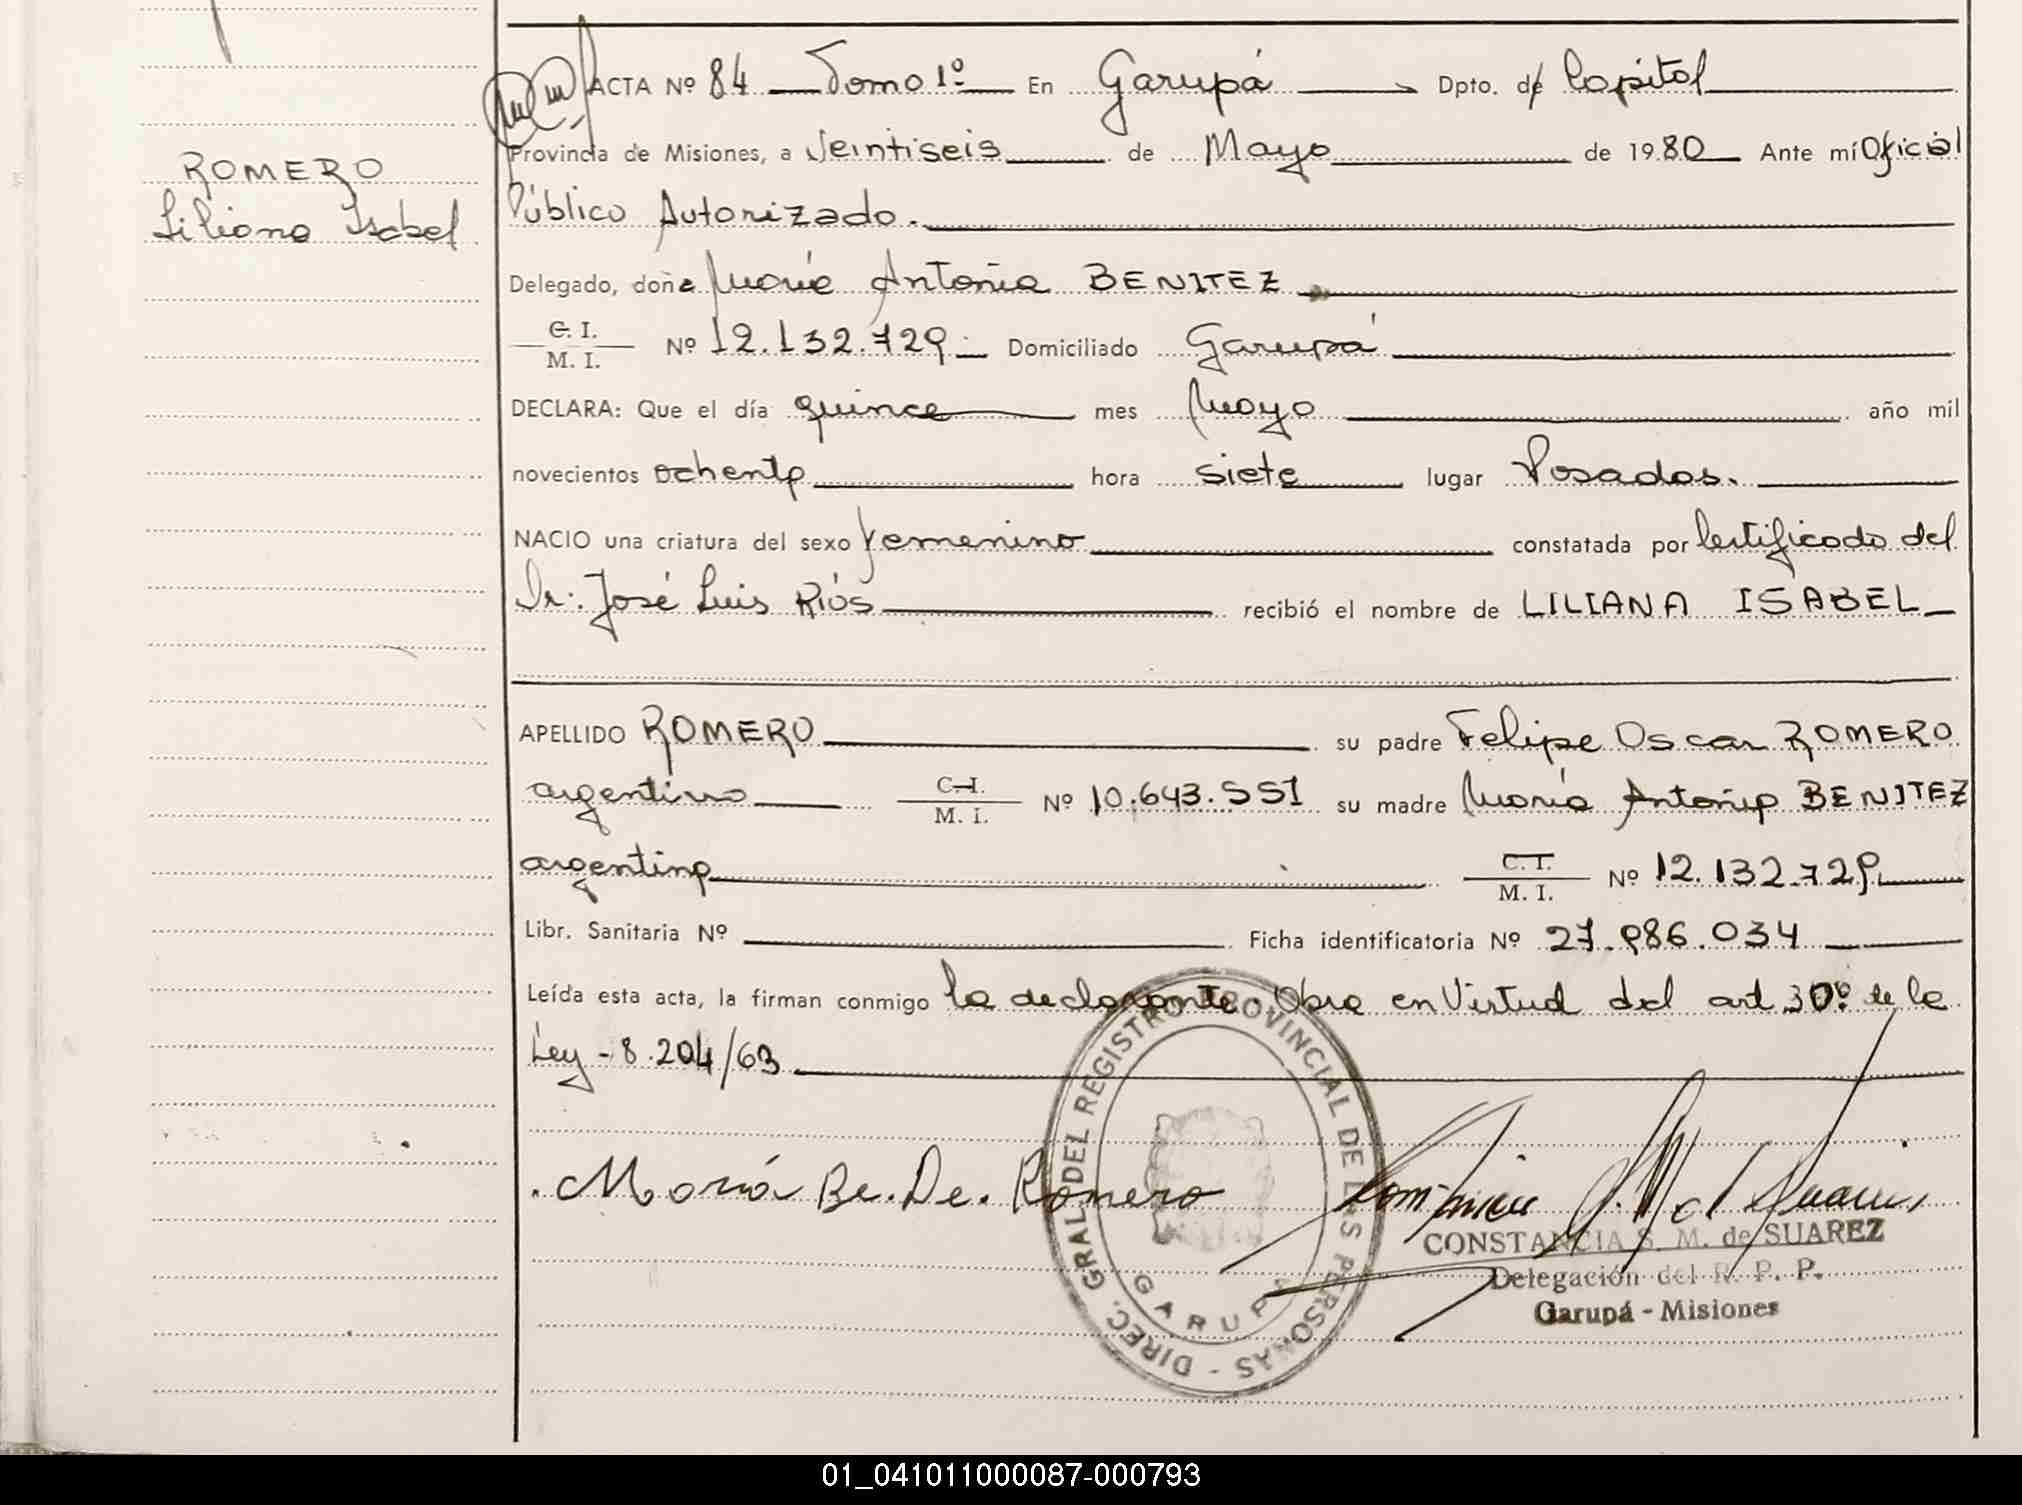 ACTA Nº 84 Tomo 1º En Garupá Dpto. de Capital
Provincia de Misiones, a Veintiseis de Mayo de 1980 Ante mí Oficial
ROMERO
Liliana Isabel
Público Autorizado.
Delegado, doña María Antonia BENITEZ
C. I.
M. I. Nº 12.132.729 Domiciliado Garupá
DECLARA: Que el día quince mes Mayo año mil
novecientos ochenta hora siete lugar Posadas.
NACIO una criatura del sexo femenino constatada por Certificado del
Dr. José Luis Ríos recibió el nombre de LILIANA ISABEL
APELLIDO ROMERO su padre Felipe Oscar ROMERO
argentino C.I. M. I. Nº 10.643.551 su madre María Antonia BENITEZ
argentina C.I. M. I. Nº 12.132.729
Libr. Sanitaria Nº Ficha identificatoria Nº 27.986.034
Leída esta acta, la firman conmigo la declarante. Obra en Virtud del art 30º de la
Ley - 8.204/63
DIREC. GRAL DEL REGISTRO PROVINCIAL DE LAS PERSONAS -
GARUPA
María Be. De. Romero
CONSTANCIA S. M. de SUAREZ
Delegación del R. P. P.
Garupá - Misiones
01_041011000087-000793